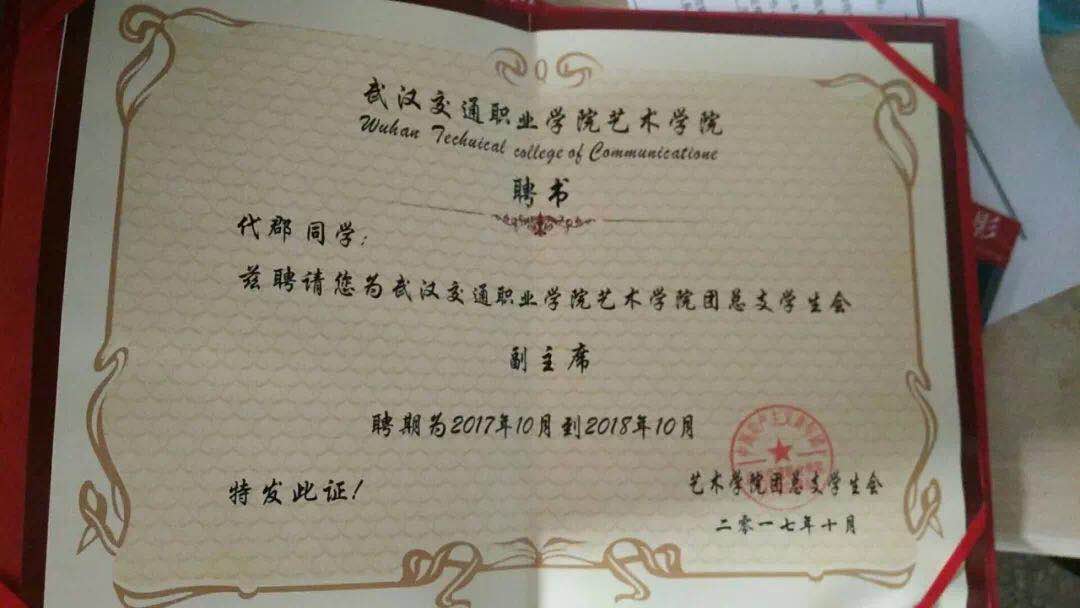 武汉交通职业学院艺术学院
Wuhan Techuical college of Communicatione
聘书
代郡同学:
兹聘请您为武汉交通职业学院艺术学院团总支学生会
副主席
聘期为2017年10月到2018年10月
特发此证!
艺术学院团总支学生会
二零一七年十月
影